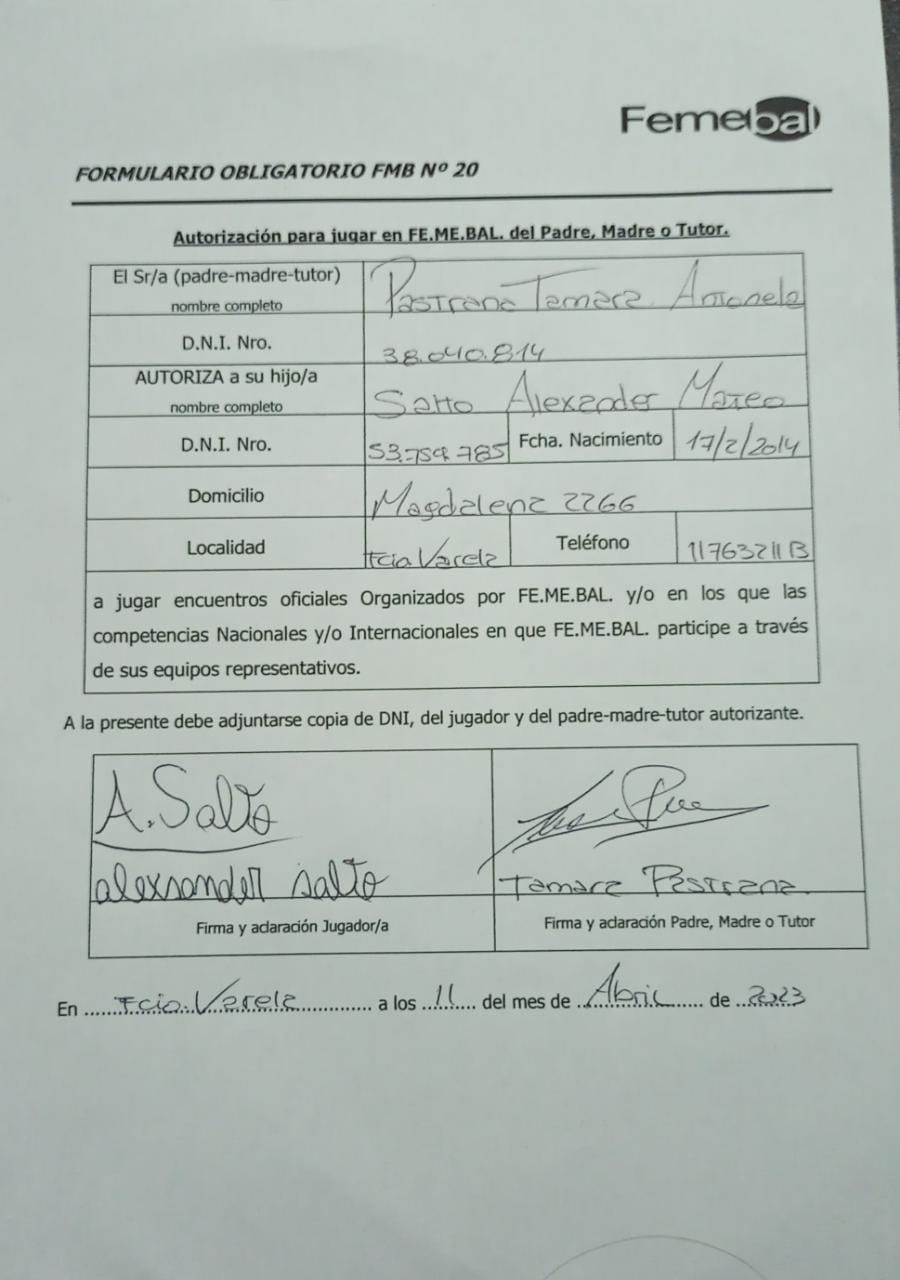 Femebal
FORMULARIO OBLIGATORIO FMB Nº 20
Autorización para jugar en FE.ME.BAL. del Padre, Madre o Tutor.
El Sr/a (padre-madre-tutor) nombre completo Pastrana Tamara Antonela
D.N.I. Nro. 38.040.814
AUTORIZA a su hijo/a nombre completo Salto Alexander Mateo
D.N.I. Nro. 53.759.785 Fcha. Nacimiento 17/2/2014
Domicilio Magdalena 2266
Localidad Fcio Varela Teléfono 1176321113
a jugar encuentros oficiales Organizados por FE.ME.BAL. y/o en los que las
competencias Nacionales y/o Internacionales en que FE.ME.BAL. participe a través
de sus equipos representativos.
A la presente debe adjuntarse copia de DNI, del jugador y del padre-madre-tutor autorizante.
A. Salto
alexsander salto Tamara Pastrana.
Firma y aclaración Jugador/a Firma y aclaración Padre, Madre o Tutor
En ......Fcio. Varela............ a los ..11.... del mes de ..Abril..... de ..2023